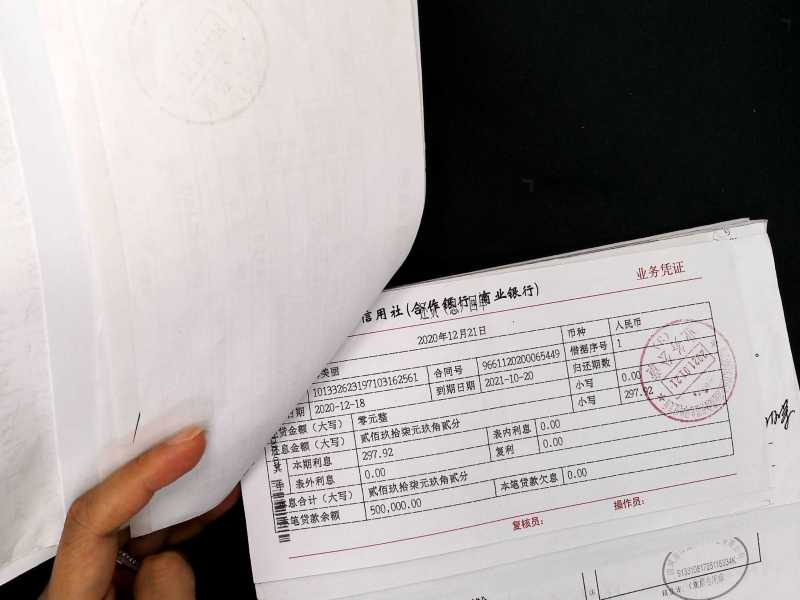 业务凭证
信用社(合作银行/商业银行)
2020年12月21日
币种 人民币
101332623197103162561 合同号 9661120200065449 借据序号 1
日期 2020-12-18 到期日期 2021-10-20 归还期数
金额（大写） 零元整 小写 0.00
息金额（大写） 贰佰玖拾柒元玖角贰分 小写 297.92
其 本期利息 297.92 表内利息 0.00
中 表外利息 0.00 复利 0.00
息合计（大写） 贰佰玖拾柒元玖角贰分
笔贷款余额 500,000.00 本笔贷款欠息 0.00
复核员： 操作员：